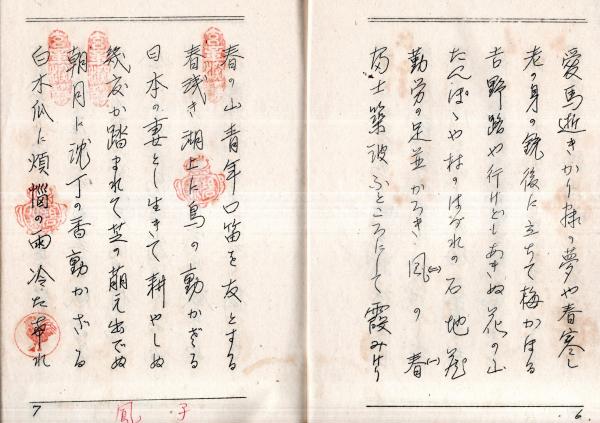 愛馬逝きかり秣の夢や春寒し
老の身の銃後に立ちて梅かほる
吉野路や行けどもあきぬ花の山
たんぽゝや村のはづれの石地蔵
勤労の足並かろき風の春
(二) (一)
富士築波ふところにして霞みけり
6
春の山青年口笛を友とする
春浅き湖上に鳥の動かざる
日本の妻とし生きて耕やしぬ
幾度か踏まれて芝の萠え出でぬ
朝月に沈丁の香動かざる
白木瓜に煩悩の雨冷た
7
鳳子